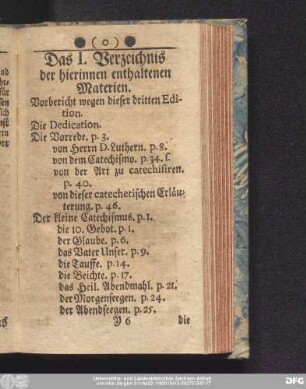 ( o )
Das I. Verzeichnis
der hierinnen enthaltenen
Materien.
Vorbericht wegen dieser dritten Edi-
tion.
Die Dedication.
Die Vorrede. p. 3.
von Herrn D. Luthern. p. 8.
von dem Catechismo. p. 34. f.
von der Art zu catechisiren.
p. 40.
von dieser catechetischen Erläu-
terung. p. 46.
Der kleine Catechismus. p. 1.
die 10. Gebot. p. 1.
der Glaube. p. 6.
das Vater Unser. p. 9.
die Tauffe. p. 14.
die Beichte. p. 17.
das Heil. Abendmahl. p. 21.
der Morgenseegen. p. 24.
der Abendseegen. p. 25.
Y 6 die